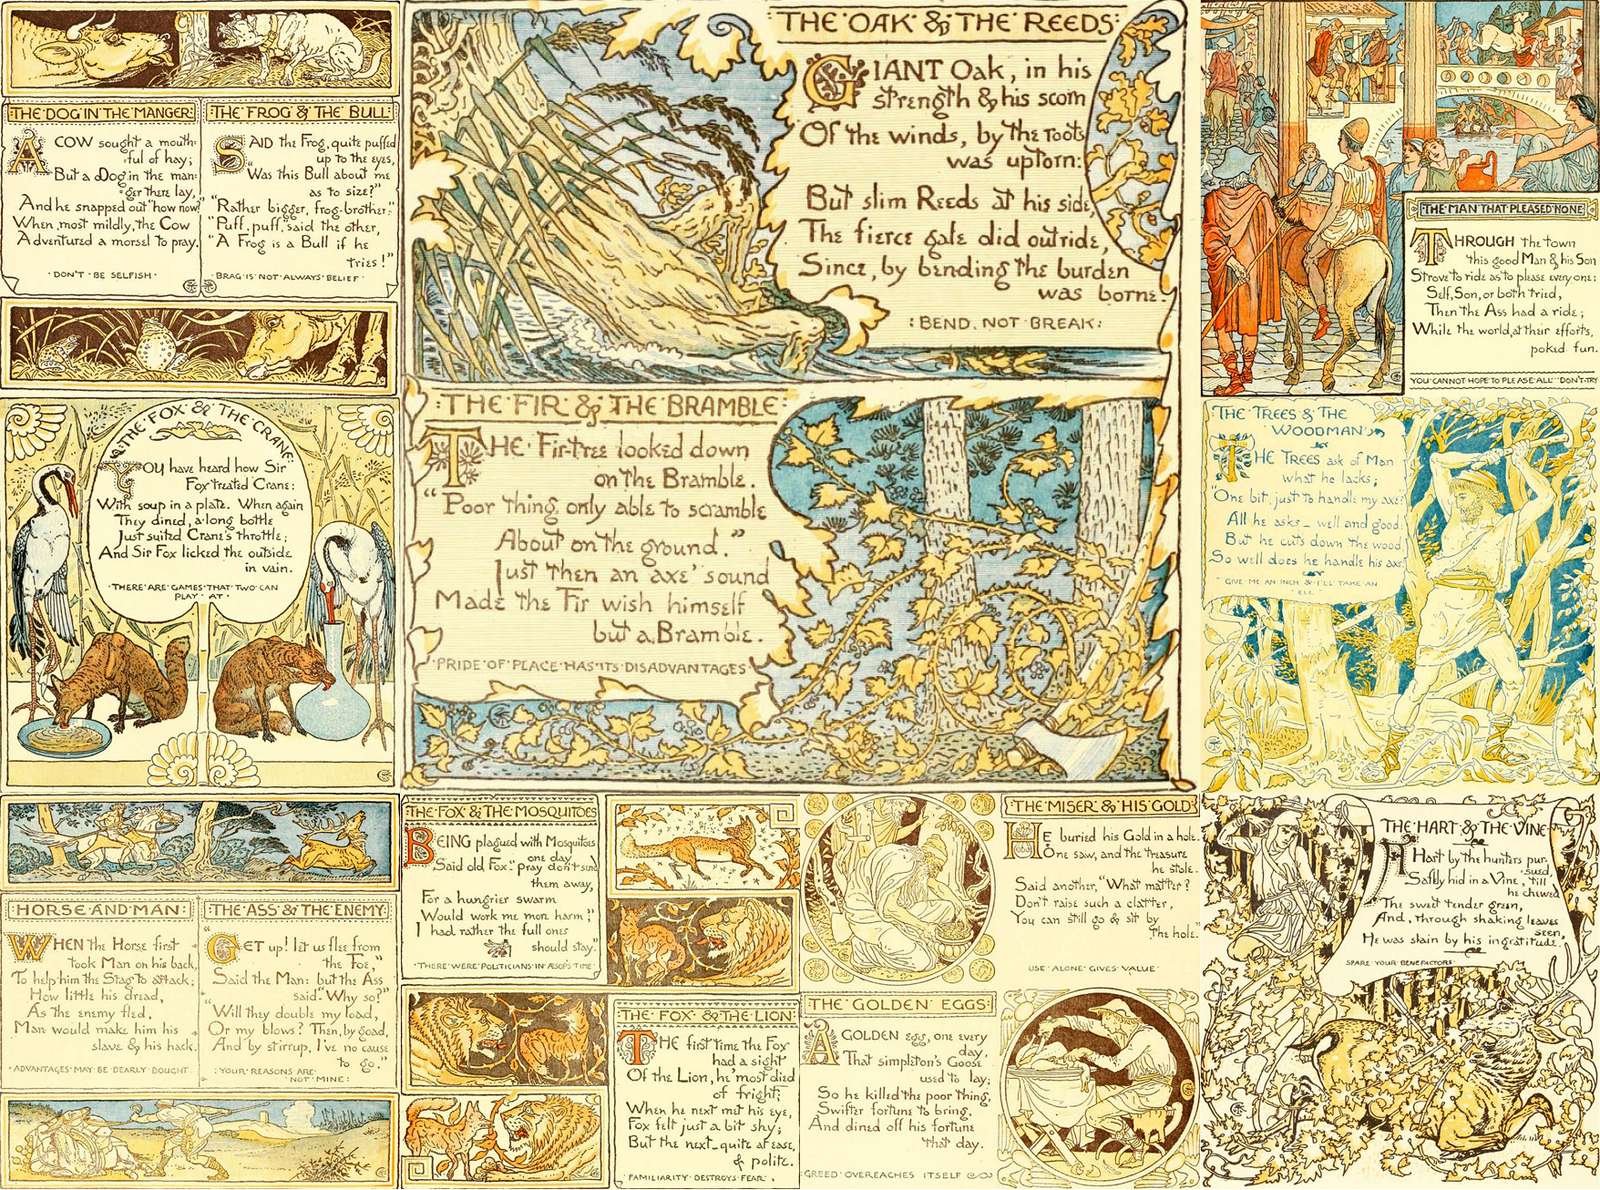 THE DOG IN THE MANGER
A COW sought a mouth-
ful of hay;
But a Dog in the man-
ger there lay,
And he snapped out "how now?"
When most mildly, the Cow
Adventured a morsel to pray.
DON'T BE SELFISH
THE FROG & THE BULL
SAID the Frog, quite puffed
up to the eyes,
"Was this Bull about me
as to size?"
"Rather bigger, frog-brother."
"Puff, puff, said the other,
"A Frog is a Bull if he
tries!"
BRAG IS NOT ALWAYS BELIEF
THE OAK & THE REEDS
GIANT Oak, in his
strength & his scorn
Of the winds, by the roots
was uptorn:
But slim Reeds at his side,
The fierce gale did outride,
Since, by bending the burden
was borne.
BEND, NOT BREAK
THE MAN THAT PLEASED NONE
THROUGH the town
this good Man & his Son
Strove to ride as to please every one:
Self, Son, or both tried,
Then the Ass had a ride;
While the world, at their efforts,
poked fun.
YOU CANNOT HOPE TO PLEASE ALL DON'T TRY
THE FOX & THE CRANE
YOU have heard how Sir
Fox treated Crane:
With soup in a plate. When again
They dined, a long bottle
Just suited Crane's throttle;
And Sir Fox licked the outside
in vain.
THERE ARE GAMES THAT TWO CAN
PLAY AT
THE FIR & THE BRAMBLE
THE Fir-tree looked down
on the Bramble.
"Poor thing, only able to scramble
About on the ground."
Just then an axe' sound
Made the Fir wish himself
but a Bramble.
PRIDE OF PLACE HAS ITS DISADVANTAGES
THE TREES & THE
WOODMAN
THE TREES ask of Man
what he lacks;
"One bit, just to handle my axe?"
All he asks — well and good:
But he cuts down the wood,
So well does he handle his axe!
GIVE ME AN INCH & I'LL TAKE AN
ELL
HORSE AND MAN
WHEN the Horse first
took Man on his back,
To help him the Stag to attack;
How little his dread,
As the enemy fled,
Man would make him his
slave & his hack.
ADVANTAGES MAY BE DEARLY BOUGHT
THE ASS & THE ENEMY
GET up! let us flee from
the Foe,"
Said the Man: but the Ass
said, "Why so?"
"Will they double my load,
Or my blows? Then, by goad,
And by stirrup, I've no cause
to go."
YOUR REASONS ARE
NOT MINE
THE FOX & THE MOSQUITOES
BEING plagued with Mosquitoes
one day,
Said old Fox, "pray don't send
them away,
For a hungrier swarm
Would work me more harm;
I had rather the full ones
should stay."
THERE WERE POLITICIANS IN ÆSOP'S TIME
THE FOX & THE LION
THE first time the Fox
had a sight
Of the Lion, he 'most died
of fright;
When he next met his eye,
Fox felt just a bit shy;
But the next — quite at ease,
& polite.
FAMILIARITY DESTROYS FEAR
THE MISER & HIS GOLD
HE buried his Gold in a hole.
One saw, and the treasure
he stole.
Said another, "What matter?
Don't raise such a clatter,
You can still go & sit by
the hole."
USE ALONE GIVES VALUE
THE GOLDEN EGGS
A GOLDEN egg, one every
day,
That simpleton's Goose
used to lay;
So he killed the poor thing,
Swifter fortune to bring,
And dined off his fortune
that day.
GREED OVEREACHES ITSELF
THE HART & THE VINE
A Hart by the hunters pur-
sued,
Safely hid in a Vine, 'till
he chewed
The sweet tender green,
And, through shaking leaves
seen,
He was slain by his ingratitude.
SPARE YOUR BENEFACTORS